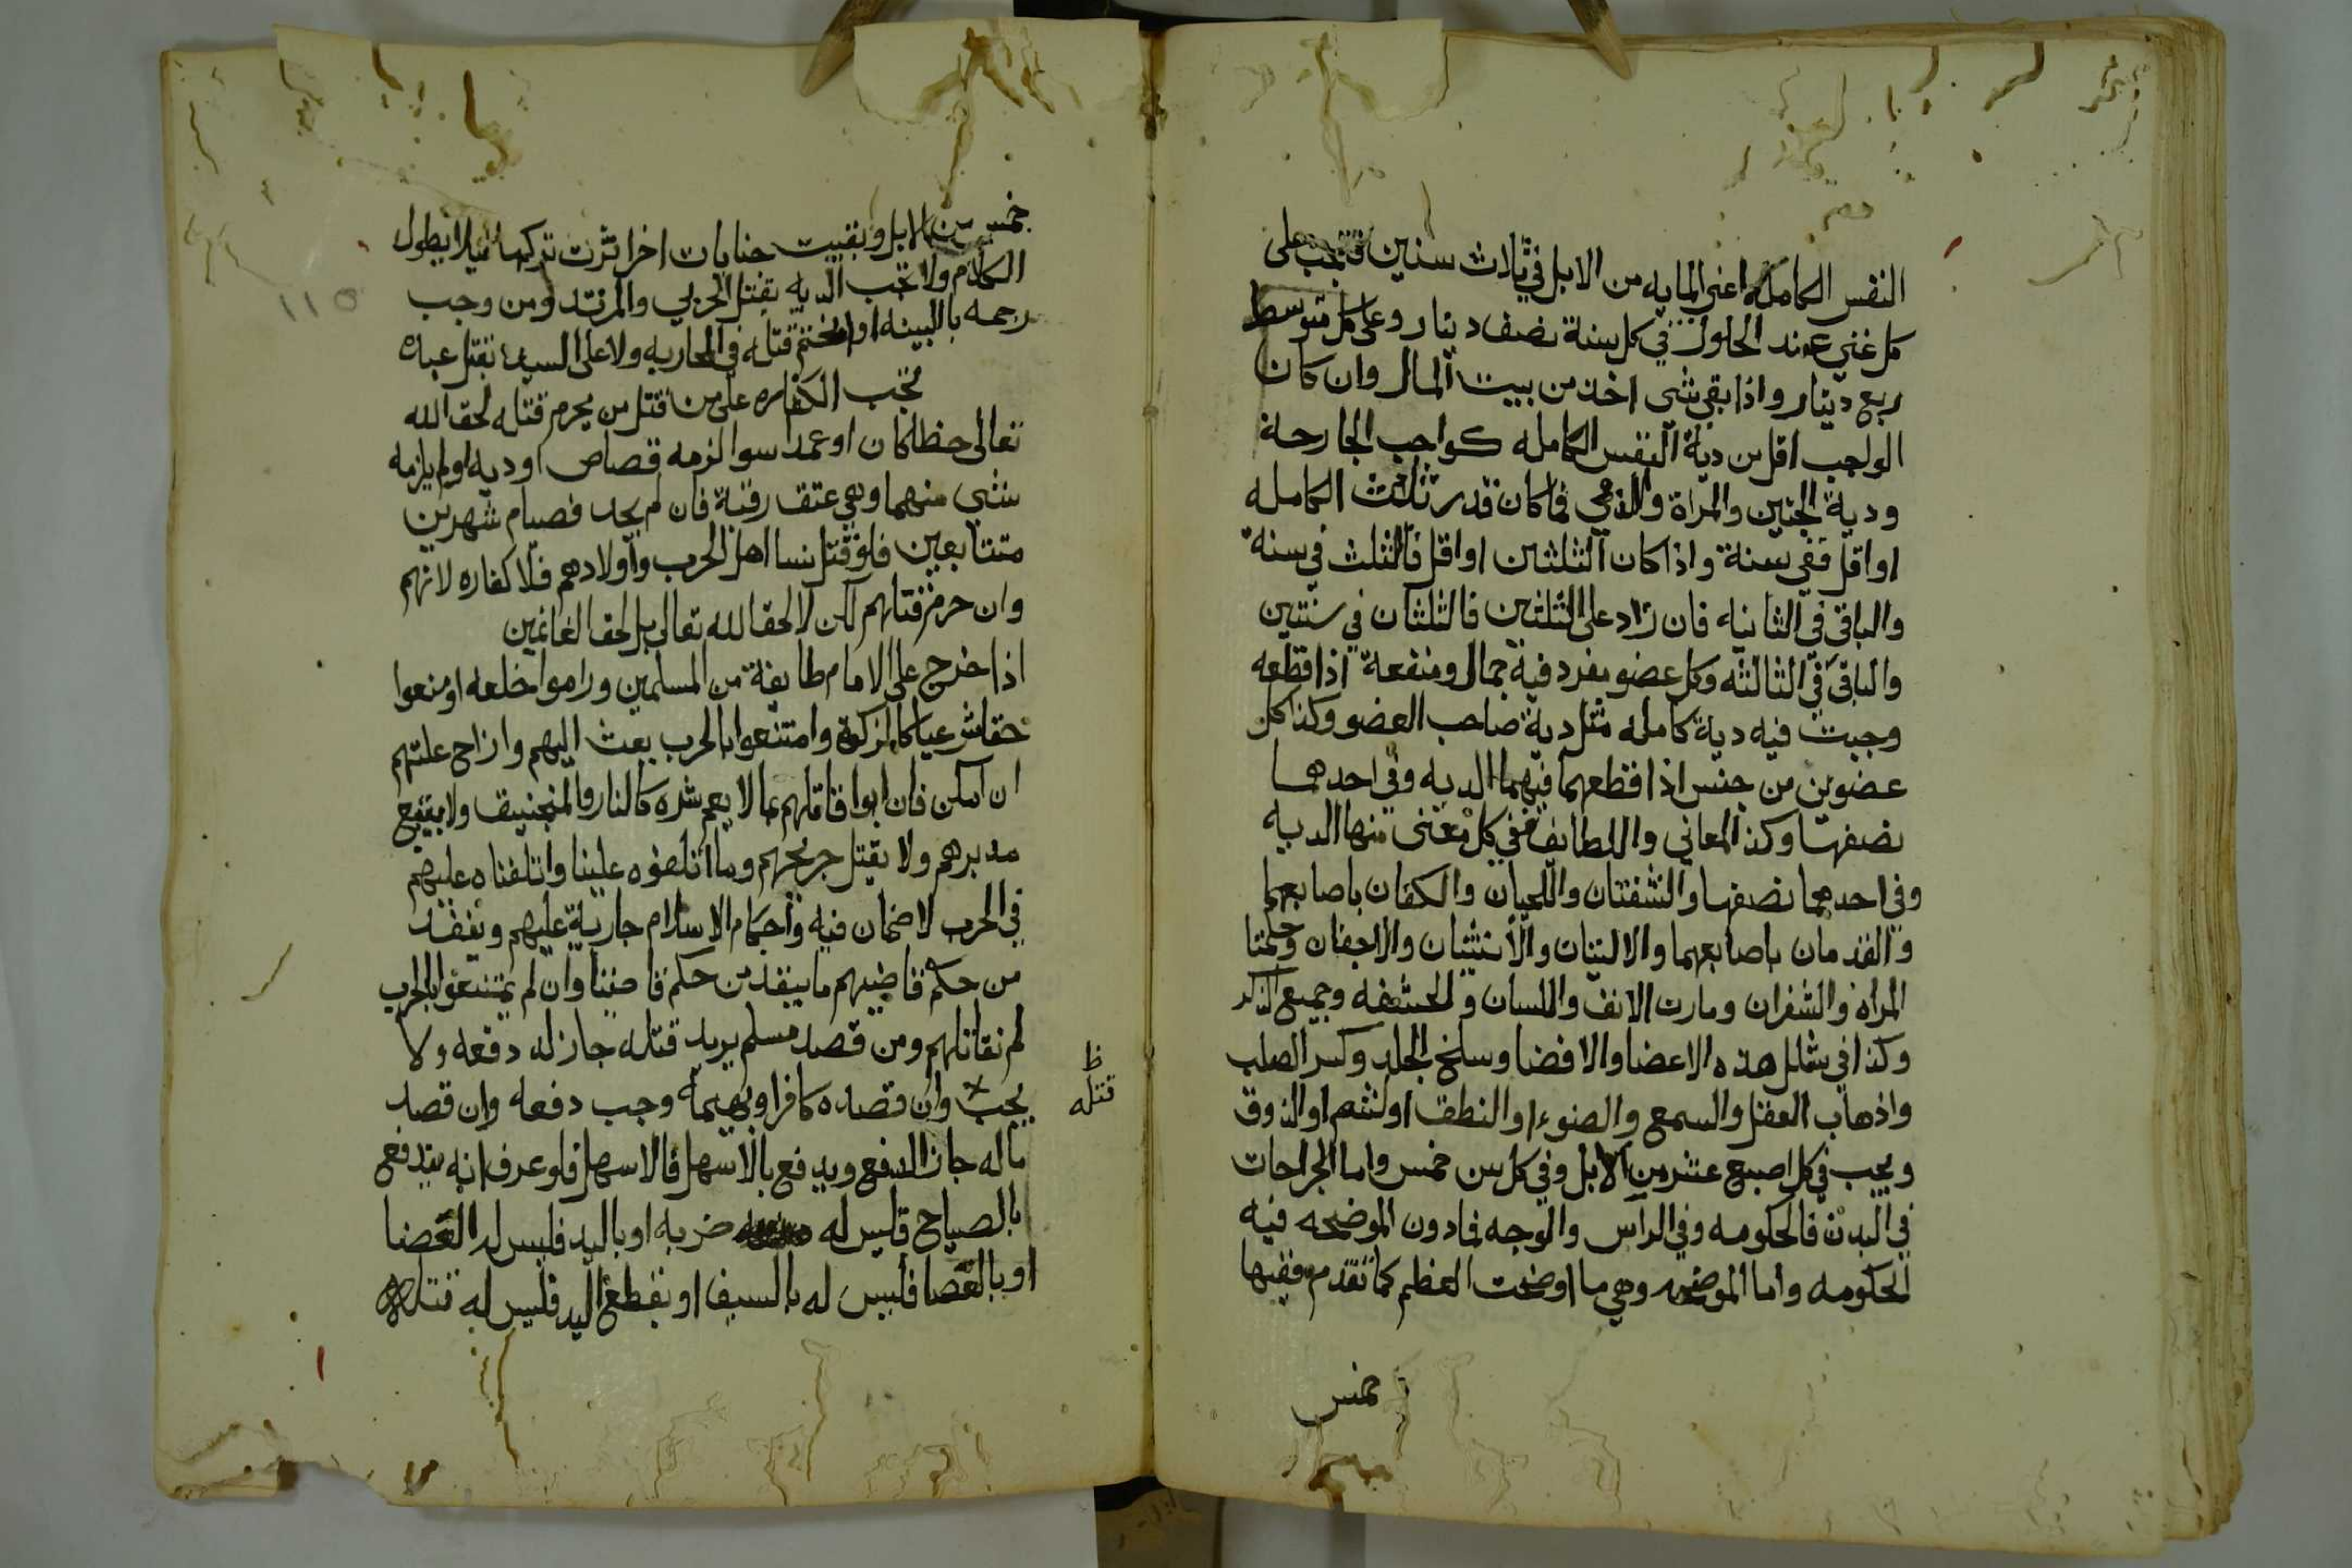 النفس الكاملة اعني المايه من الابل في ثلاث سنين فتجب على
كل غني عند الحلول في كل سنة نصف دينار وعلى كل متوسط
ربع دينار واذا بقي شي اخذ من بيت المال وان كان
الواجب اقل من دية النفس الكامله كواجب الجارحة
ودية الجنين والمراة والذمي فما كان قدر ثلث الكامله
او اقل ففي سنة واذا كان الثلثين او اقل فالثلث في سنة
والباقي في الثانيه فان زاد على الثلثين فالثلثان في سنتين
والباقي في الثالثه وكل عضو مفرد فيه جمال ومنفعة اذا قطعه
وجبت فيه دية كامله مثل دية صاحب العضو وكذا كل
عضوين من جنس اذا قطعهما فيهما الديه وفي احدهما
نصفها وكذا المعاني واللطايف ففي كل معنى منها الديه
وفي احدهما نصفها والشفتان واللحيان والكفان باصابعهما
والقدمان باصابعهما والاليتان والأنثيان والاجفان وحلمتا
المراه والشفران ومارن الانف واللسان والحشفه وجميع الذكر
وكذا في شلل هذه الاعضا والافضا وسلخ الجلد وكسر الصلب
واذهاب العقل والسمع والضوء او النطق او الشم او الذوق
ويجب في كل اصبع عشر من الابل وفي كل سن خمس واما الجراحات
في البدن فالحكومه وفي الرأس والوجه فمادون الموضحه فيه
الحكومه واما الموضحه وهي ما اوضحت العظم كما تقدم ففيها
خمس
خمس من الابل وبقيت جنايات اخر اثرت تركها ليلا يطول
الكلام ولا تجب الديه بقتل الحربي والمرتد ومن وجب
رجمه بالبينه او انحتم قتله في المحاربه ولا على السيد بقتل عبده
تجب الكفاره على من قتل من يحرم قتله لحق الله
تعالى خطا كان او عمدا سوا لزمه قصاص او ديه او لم يلزمه
شي منهما وهي عتق رقبة فان لم يجد فصيام شهرين
متتابعين فلو قتل نسا اهل الحرب واولادهم فلا كفاره لانهم
وان حرم قتلهم لكن لا لحق الله تعالى بل لحق الغانمين
اذا خرج على الامام طايفة من المسلمين وراموا خلعه او منعوا
حقا شرعيا كالزكوة وامتنعوا بالحرب بعث اليهم وازاح علتهم
ان امكن فان ابوا قاتلهم بما لا يعم شره كالنار والمنجنيق ولا يتبع
مدبرهم ولا يقتل جريحهم وما اتلفوه علينا واتلفناه عليهم
في الحرب لا ضمان فيه وأحكام الاسلام جارية عليهم وينفذ
من حكم قاضيهم ما ينفذ من حكم قاضينا وان لم يمتنعوا بالحرب
لم نقاتلهم ومن قصد مسلم يريد قتله جاز له دفعه ولا
يجب وان قصده كافر او بهيمة وجب دفعه وان قصد
ماله جاز الدفع ويدفع بالاسهل فالاسهل فلو عرف انه يندفع
بالصياح فليس له ضربه او باليد فليس له العصا
او بالعصا فليس له بالسيف او بقطع اليد فليس له قتله
ظ
قتله
١١٥